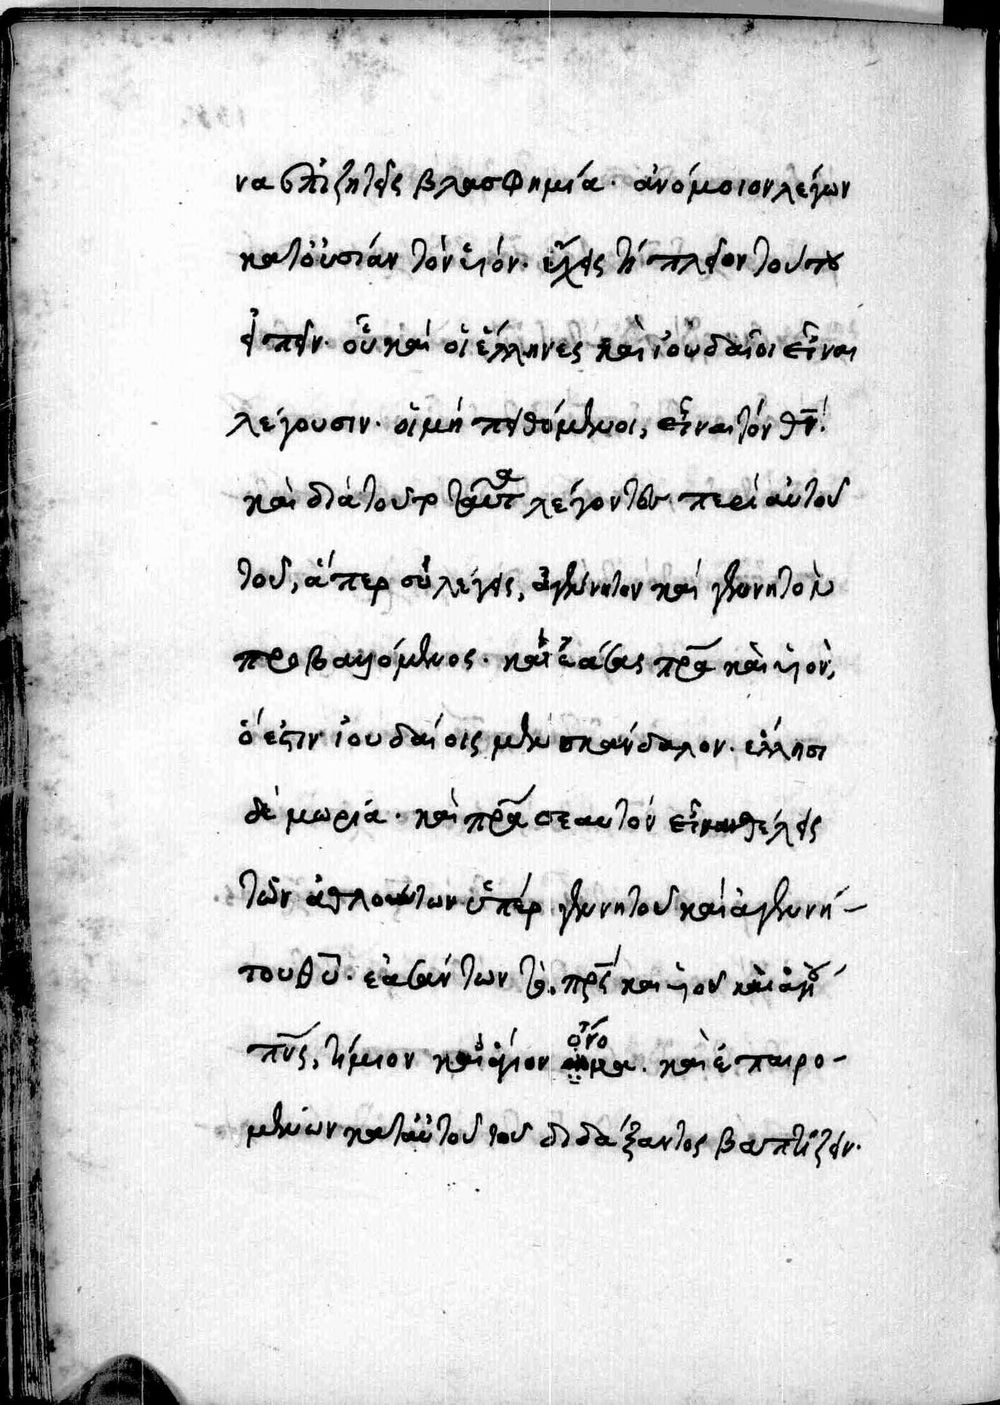 να ἐπιζητεῖς βλασφημία· ἀνόμοιον λέγων
κατοὐσίαν τὸν υἱόν. εἶχες τί πλέον τοῦ που
εἰπεῖν· οὗ καὶ οἱ ἕλληνες καὶ ἰουδαῖοι εἶναι
λέγουσιν. οἱ μὴ πειθόμενοι, εἶναι τὸν θν̄.
καὶ διὰ τοῦτο ταῦτα λέγοντων περὶ αὐτοῦ
τοῦ, ἅπερ σὺ λέγεις, ἀγέννητον καὶ γεννητὸν
προβαλλόμενος. καὶ ἐάσας πρ̄α καὶ υἱὸν,
ὅ ἐστιν ἰουδαίοις μὲν σκάνδαλον. ἕλλησι
δὲ μωρία. καὶ πρ̄α σεαυτὸν εἶναι θέλεις
τῶν ἀθλούντων ὑπὲρ γεννητοῦ καὶ ἀγεννή-
του θῦ. ἐασάντων τὸ πρ̄ς καὶ υἱοῦ καὶ ἁγίου
πν̄ς, τίμιον καὶ ἅγιον ὄνομα. καὶ ἐπαιρο-
μένων κατ' αὐτοῦ τοῦ διδάξαντος βαπτίζειν.